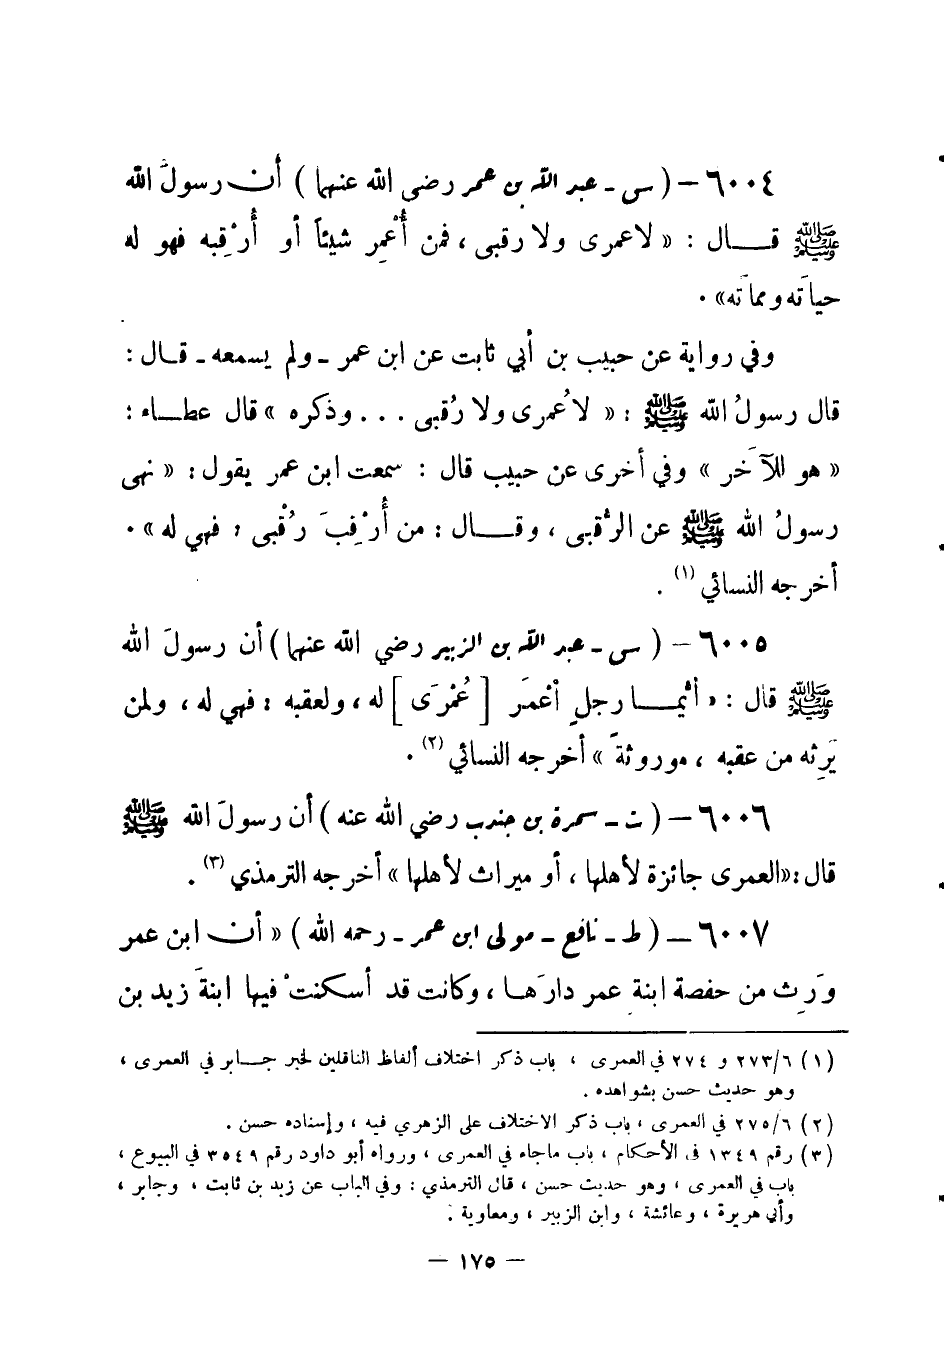 ٦٠٠٤ – ( س - عبد الله بن عمر رضي الله عنهما ) أن رسولَ الله
ﷺ قـــال : « لاعمرى ولا رقبى ، فمن أُعْمِر شيئاً أو أُرْقِبه فهو له
حياتَه ومماتَه» .
وفي رواية عن حبيب بن أبي ثابت عن ابن عمر - ولم يسمعه - قـال :
قال رسولُ الله ﷺ : « لا عُمرى ولا رُقبى ... وذكره » قال عطـاء :
« هو للآخَر » وفي أخرى عن حبيب قال : سمعت ابن عمر يقول : « نهى
رسولُ الله ﷺ عن الرُّقبى ، وقـــال : من أُرْقِبَ رُقْبى ؛ فهي له » .
أخرجه النسائي (١) .
٦٠٠٥ – ( س - عبد الله بن الزبير رضي الله عنهما ) أن رسولَ الله
ﷺ قال : « أثُّيمـــا رجلٍ أعْمَرَ [ عُمْرَى ] له ، ولعقبه ؛ فهي له ، ولمن
يَرِثه من عقبه ، موروثةً » أخرجه النسائي (٢) .
٦٠٠٦ – ( ت - سمرة بن جندب رضي الله عنه ) أن رسولَ الله ﷺ
قال : «العمرى جائزة لأهلها ، أو ميراث لأهلها » أخرجه الترمذي (٣) .
٦٠٠٧ – ( ط - نافع - مولى ابن عمر - رحمه الله ) « أن ابن عمر
وَرِث من حفصة ابنةِ عمر دارَهـا ، وكانت قد أسكنتْ فيها ابنةَ زيد بن
(١) ٢٧٣/٦ و ٢٧٤ في العمرى ، باب ذكر اختلاف ألفاظ الناقلين لخبر جـابر في العمرى ،
وهو حديث حسن بشواهده .
(٢) ٢٧٥/٦ في العمرى ، باب ذكر الاختلاف على الزهري فيه ، وإسناده حسن .
(٣) رقم ١٣٤٩ في الأحكام ، باب ماجاء في العمرى ، ورواه أبو داود رقم ٣٥٤٩ في البيوع ،
باب في العمرى ، وهو حديث حسن ، قال الترمذي : وفي الباب عن زيد بن ثابت ، وجابر ،
وأبي هريرة ، وعائشة ، وابن الزبير ، ومعاوية .
– ١٧٥ –